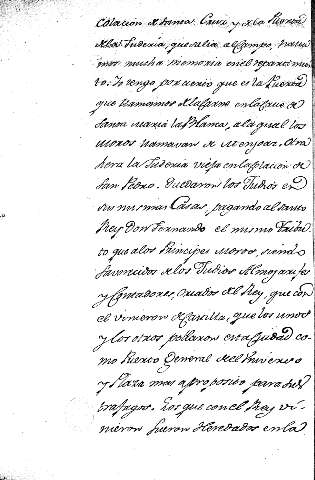 colacion de Santa Cruz, y de la Puerta
de la Juderia, que salia al Campo, halla-
mos mucha memoria en el repartimien-
to: Yo tengo por cierto que es la Puerta
que llamamos de la Carne en la que es
Santa Maria la Blanca, a la qual los
Moros llamavan de Menjoar. Otra
hera la Juderia vieja en la colacion de
San Pedro. Quedaron los Judios en
sus mismas Casas, pagando al Santo
Rey Don Fernando el mismo Tribu-
to que a los Principes Moros, siendo
favorecidos de los Judios Almojarifes
y Contadores, criados del Rey, que con
el vinieron de Castilla, que los unos
y los otros poblaron esta Ciudad co-
mo Puerto General de el Universo
y Plaza mas aproposito para sus
trafagos. Los que con el Rey vi-
nieron fueron Heredados en la